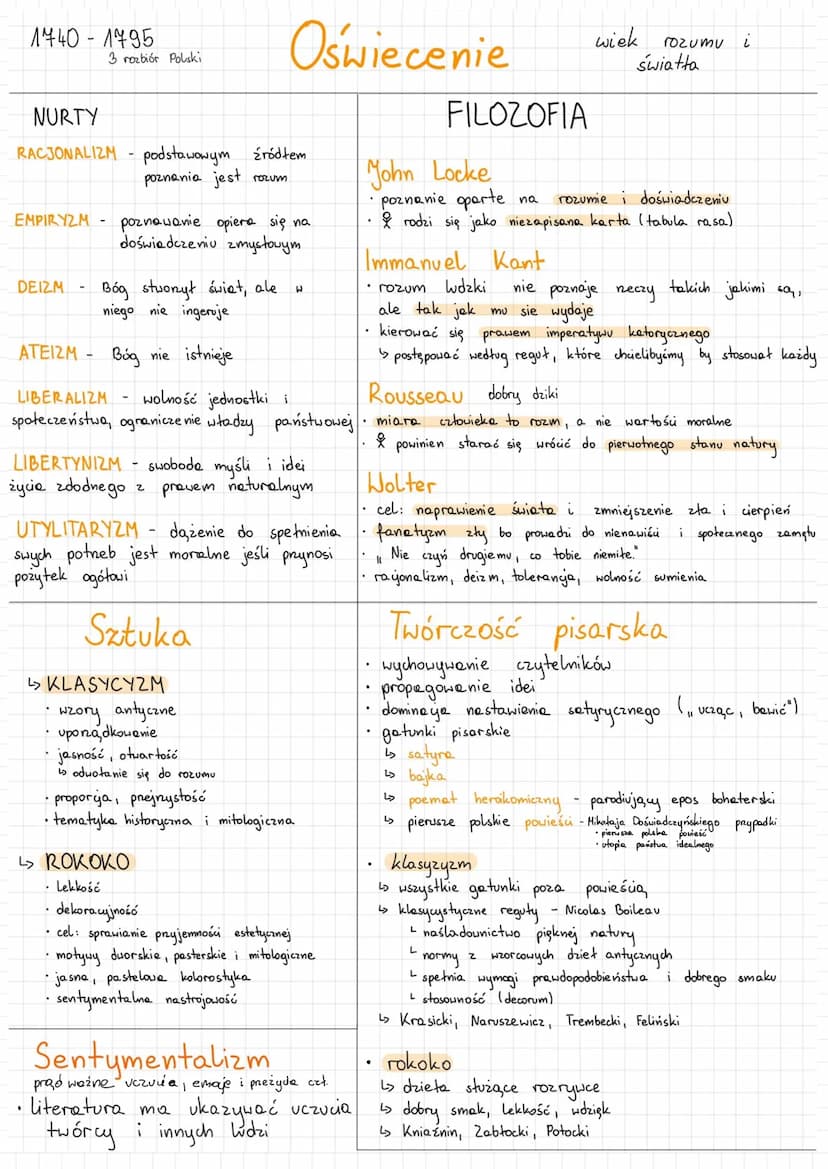 1740 - 1795
3 rozbiór Polski
Oświecenie
wiek rozumu i
światła
NURTY
RACJONALIZM - podstawowym źródłem
poznania jest rozum
EMPIRYZM - poznawanie opiera się na
doświadczeniu zmysłowym
DEIZM - Bóg stworzył świat, ale w
niego nie ingeruje
ATEIZM - Bóg nie istnieje
LIBERALIZM - wolność jednostki i
społeczeństwa, ograniczenie władzy państwowej
LIBERTYNIZM - swoboda myśli i idei
życia zdodnego z prawem naturalnym
UTYLITARYZM - dążenie do spełnienia
swych potrzeb jest moralne jeśli przynosi
pożytek ogółowi
FILOZOFIA
John Locke
· poznanie oparte na rozumie i doświadczeniu
· rodzi się jako niezapisana karta (tabula rasa)
Immanuel Kant
· rozum ludzki nie poznaje rzeczy takich jakimi są,
ale tak jak mu sie wydaje
· kierować się prawem imperatywu katorycznego
↳ postępować według reguł, które chcielibyśmy by stosował każdy
Rousseau dobry dziki
· miarą człowieka to rozm, a nie wartości moralne
· powinien starać się wrócić do pierwotnego stanu natury
Wolter
· cel: naprawienie świata i zmniejszenie zła i cierpień
· fanatyzm zły bo prowadzi do nienawiści i społecznego zamętu
· „Nie czyń drugiemu, co tobie niemiłe."
· racjonalizm, deizm, tolerancja, wolność sumienia
Sztuka
↳ KLASYCYZM
· wzory antyczne
· uporządkowanie
· jasność, otwartość
↳ odwołanie się do rozumu
· proporcja, przejrzystość
· tematyka historyczna i mitologiczna
↳ ROKOKO
· lekkość
· dekoracyjność
· cel: sprawianie przyjemności estetycznej
· motywy dworskie, pasterskie i mitologiczne
· jasna, pastelowa kolorystyka
· sentymentalna nastrojowość
Sentymentalizm
prąd ważne uczucia, emocje i przeżycia czł.
· literatura ma ukazywać uczucia
twórcy i innych ludzi
Twórczość pisarska
· wychowywanie czytelników
· propagowanie idei
· dominacja nastawienia satyrycznego („ucząc, bawić")
· gatunki pisarskie
↳ satyra
↳ bajka
↳ poemat heroikomiczny - parodiujący epos bohaterski
↳ pierwsze polskie powieści - Mikołaja Doświadczyńskiego przypadki
· pierwsza polska powieść
· utopia państwa idealnego
· klasyzyzm
↳ wszystkie gatunki poza powieścią
↳ klasycystyczne reguły - Nicolas Boileau
└ naśladownictwo pięknej natury
└ normy z wzorcowych dzieł antycznych
└ spełnia wymogi prawdopodobieństwa i dobrego smaku
└ stosowność (decorum)
↳ Krasicki, Naruszewicz, Trembecki, Feliński
· rokoko
↳ dzieła służące rozrywce
↳ dobry smak, lekkość, wdzięk
↳ Kniaźnin, Zabłocki, Potocki